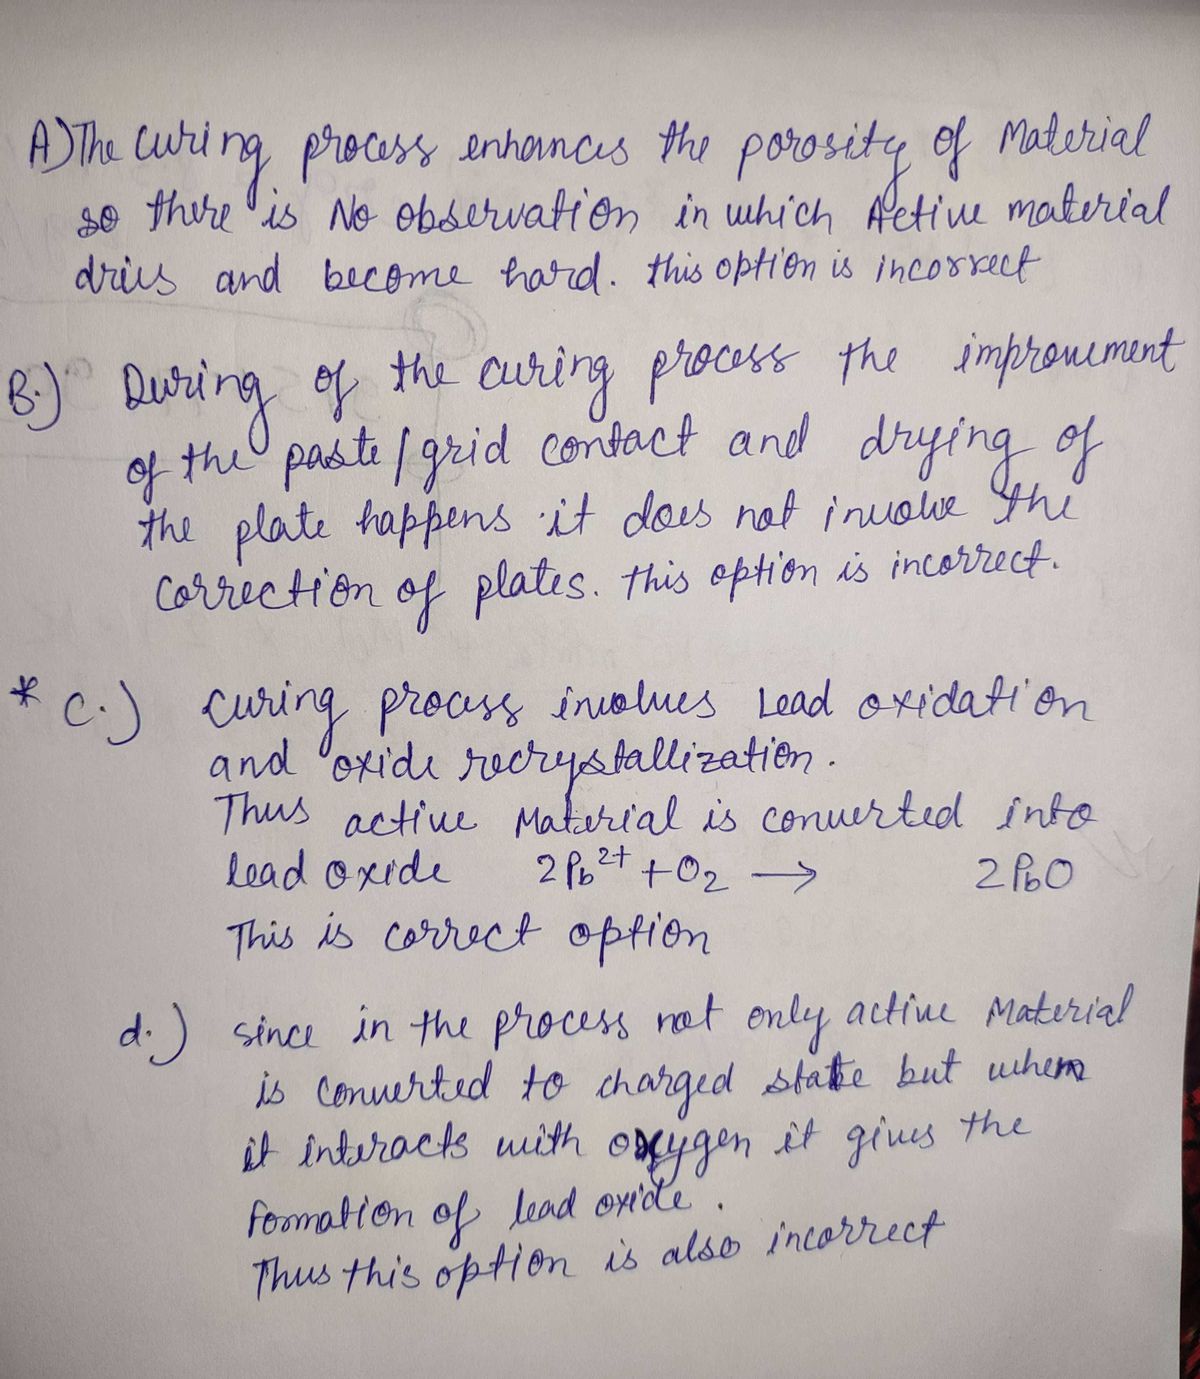 A) The curing process enhances the porosity of Material
so there is No observation in which Active material
dries and become hard. this option is incorrect
B.) During of the curing process the improvement
of the paste/grid contact and drying of
the plate happens it does not involve the
correction of plates. this option is incorrect.
* C.) curing process involves Lead oxidation
and oxide recrystallization.
Thus active Material is converted into
lead oxide 2Pb²⁺ + O₂ → 2PbO
This is correct option
d.) since in the process not only active Material
is converted to charged state but when
it interacts with oxygen it gives the
formation of lead oxide.
Thus this option is also incorrect